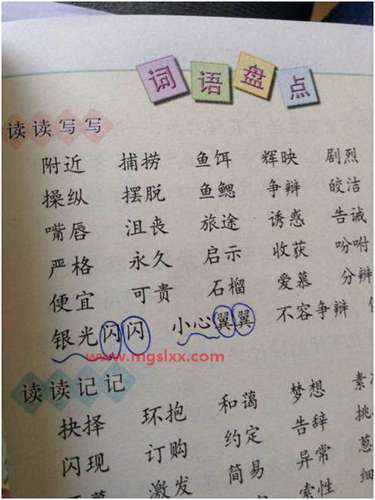 词语盘点
读读写写
附近 捕捞 鱼饵 辉映 剧烈
操纵 摆脱 鱼鳃 争辩 皎洁
嘴唇 沮丧 旅途 诱惑 告诫
严格 永久 启示 收获 吩咐
便宜 可贵 石榴 爱慕 分辨
银光闪闪 小心翼翼 不容争辩
www.mgslxx.com
读读记记
抉择 环抱 和蔼 梦想
闪现 订购 约定 告辞
激发 简易 异常
索性